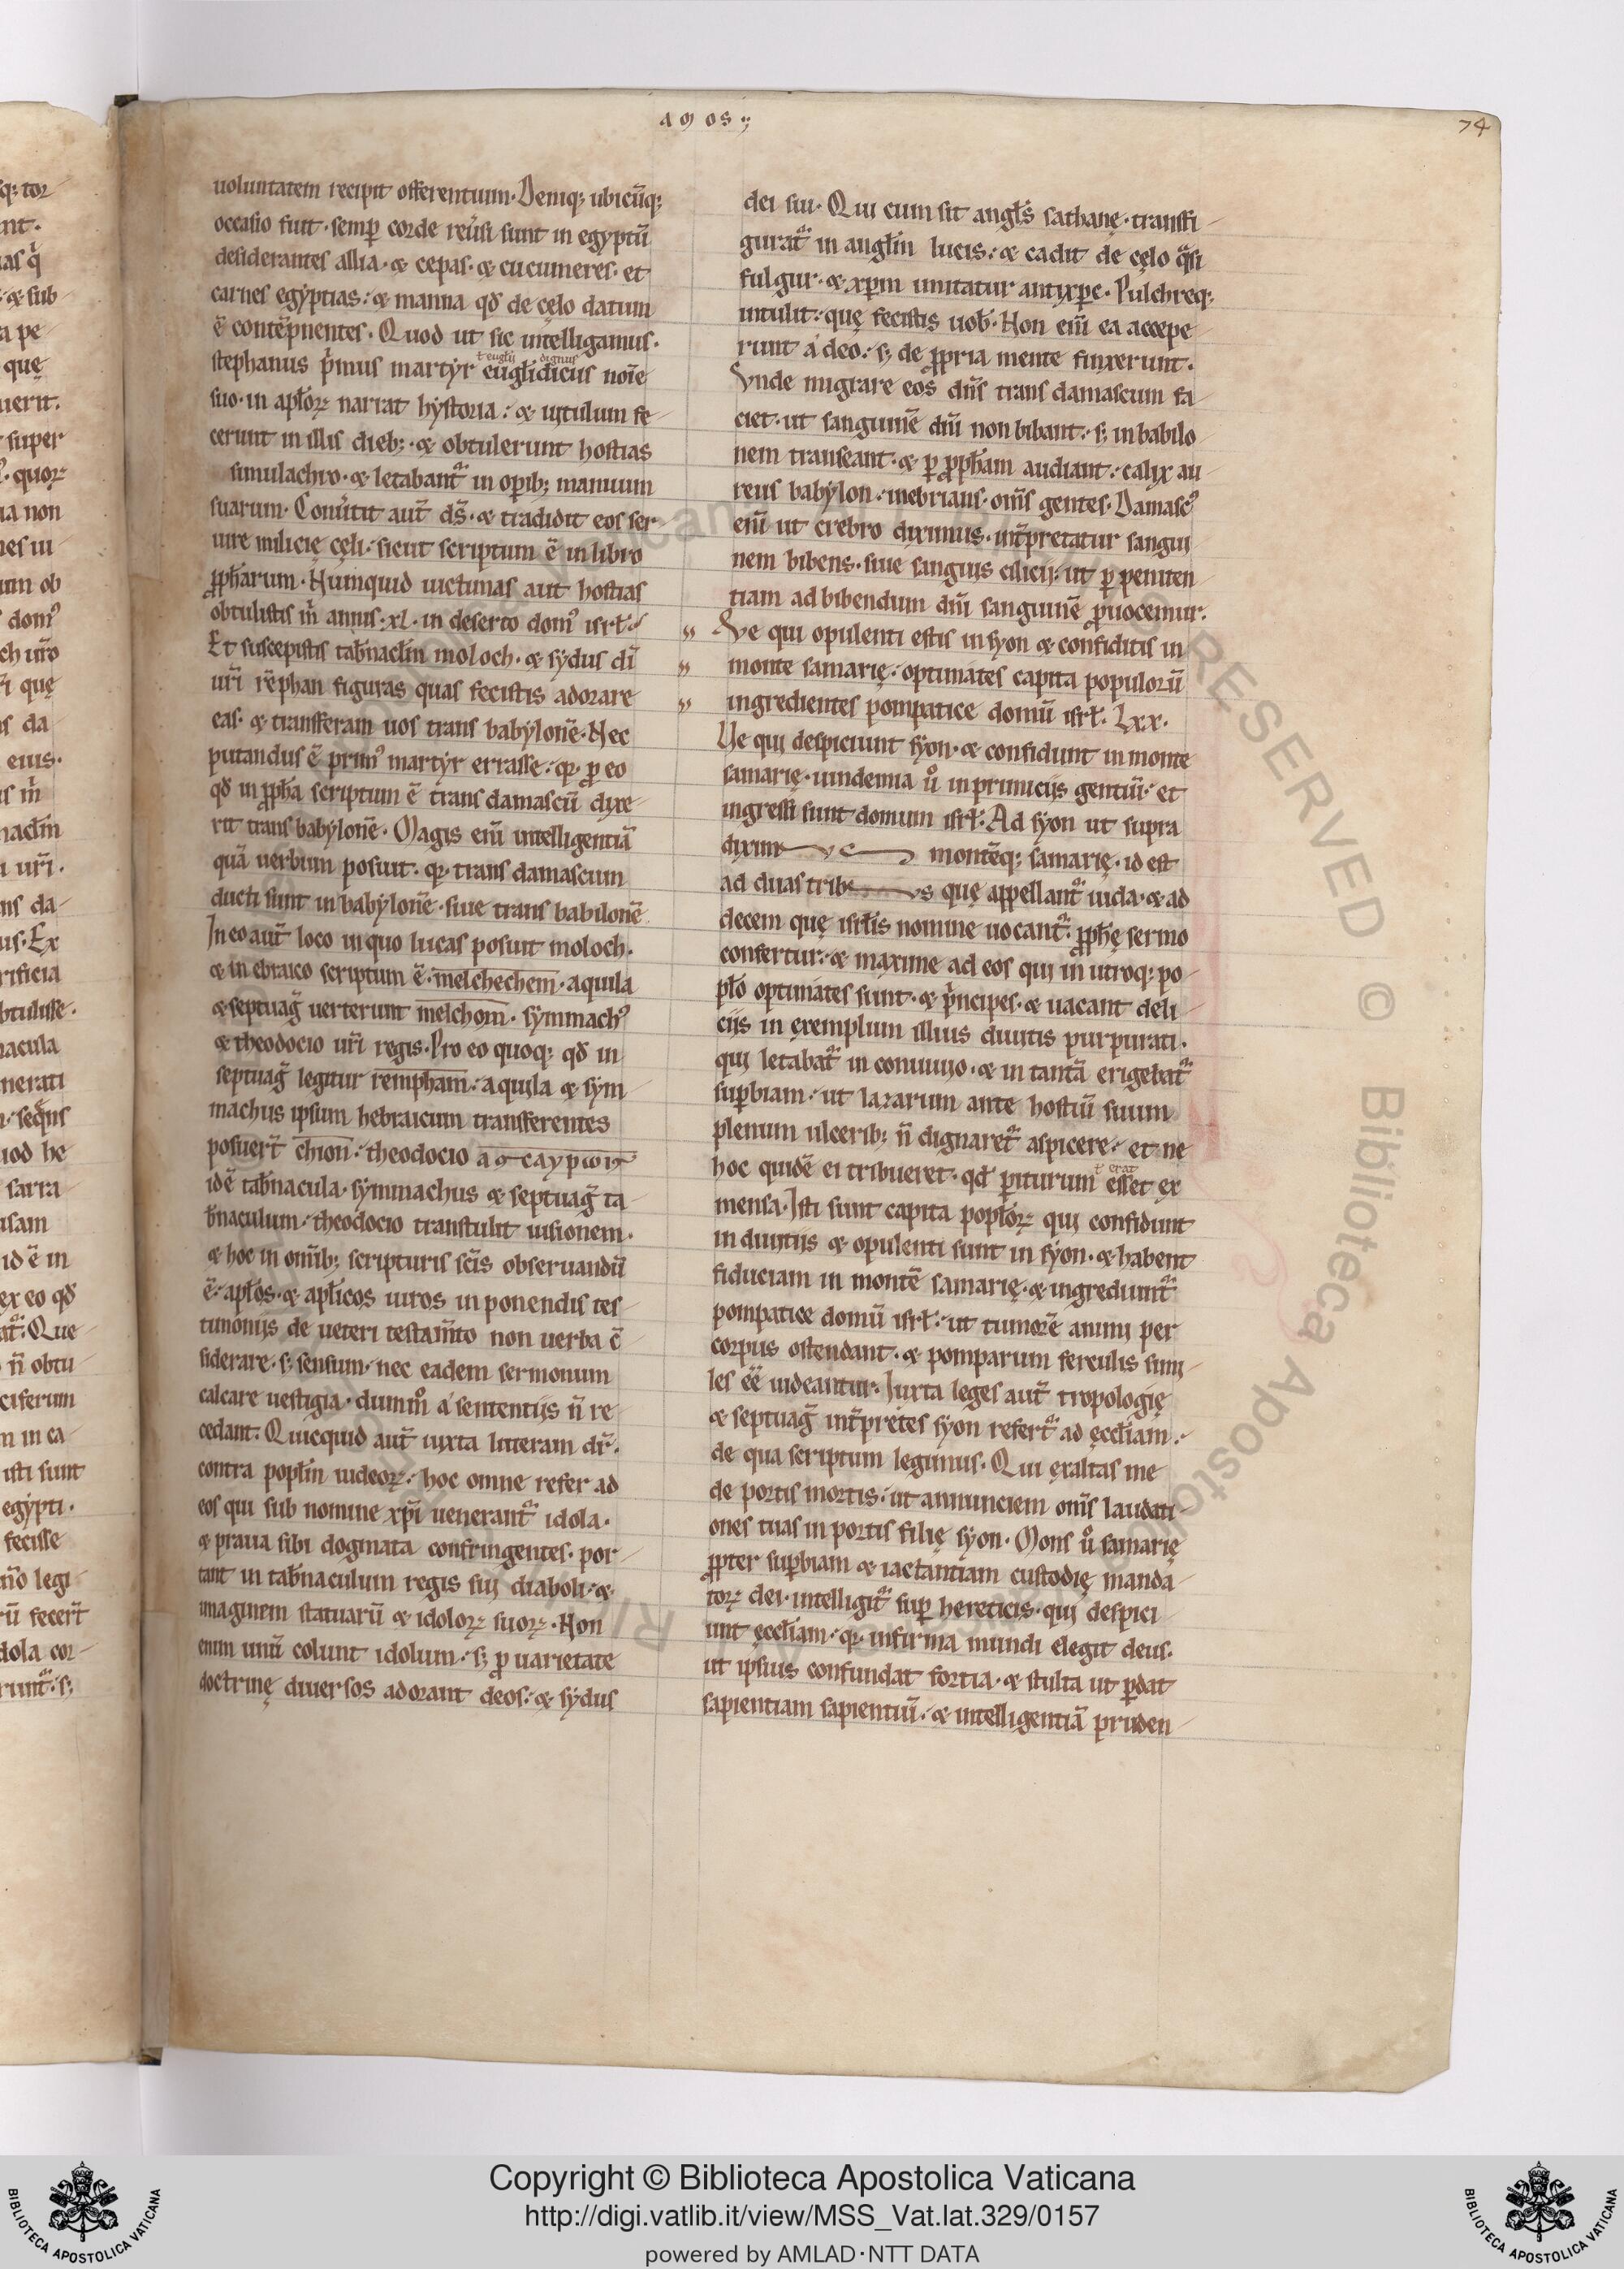 AMOS
74
uoluntatem recipit offerentium. Deniq; ubicūq;
occasio fuit. semp̄ corde reu̓si sunt in egyptū
desiderantes allia. & cepas. & cucumeres. et
carnes egyptias: & manna qd̄ de cęlo datum
ē contēpnentes. Quod ut sic intelligamus.
ł eugłij dignus
stephanus p̓mus martyr eugłidicus noīe
suo. in apłoꝝ narrat hystoria: & uitulum fe-
cerunt in illis dieb; & obtulerunt hostias
simulachro. & letabantᷣ in opib; manuum
suarum. Conu̓tit aut̄ ds̄. & tradidit eos ser-
uire milicię cęli. sicut scriptum ē in libro
ꝓph̄arum. Numquid uictimas aut hostias
obtulistis m̓ annis .xl. in deserto domꝰ isrł.
Et suscepistis tab̄nacłm moloch. & sydus dī
ur̄i rēphan figuras quas fecistis adorare
eas. & transferam uos trans babylonē. Nec
putandus ē primꝰ martyr errasse. qꝛ ꝓ eo
qd̄ in ꝓph̄a scriptum ē trans damascū dixe-
rit trans babylonē. Magis enī intelligentiā
quā uerbum posuit. qꝛ trans damascum
ducti sunt in babylonē. siue trans babilonē
In eo aut̄ loco in quo lucas posuit moloch.
& in ebraico scriptum ē. melchechem. aquila
& septuaḡ uerterunt melchom. symmachꝰ
& theodocio ur̄i regis. Pro eo quoq; qd̄ in
septuaḡ legitur rempham. aquila & sym-
machus ipsum hebraicum transferentes
posuer̄t chion. theodocio
idē tab̄nacula. symmachus & septuaḡ ta-
b̄naculum. theodocio transtulit uisionem.
& hoc in omīb; scripturis scīs obseruandū
ē. apłos. & apłicos uiros in ponendis tes-
timoniis de ueteri testam̄to non uerba c̄
siderare. s; sensum. nec eadem sermonum
calcare uestigia. dummᵒ a sententiis n̄ re-
cedant. Quicquid aut̄ iuxta litteram dr̄.
contra popłm iudeoꝝ. hoc omne refer ad
eos qui sub nomine xp̄i uenerantᷣ idola.
& praua sibi dogmata confringentes. por-
tant in tab̄naculum regis sui diaboli. &
imaginem statuarū & idoloꝝ suoꝝ. Non
enim unū colunt idolum. s; ꝓ uarietate
doctrinę diuersos adorant deos. & sydus
dei sui. Qui cum sit angłs sathanę. transfi-
guratᷣ in angłm lucis. & cadit de cęlo q̄si
fulgur. & xp̄m imitatur antixp̄c. Pulchreq;
intulit. quę fecistis uob̄. Non enī ea accepe-
runt a deo. s; de ꝓpria mente finxerunt.
Vnde migrare eos dn̄s trans damascum fa-
ciet. ut sanguinē dn̄i non bibant. s; in babilo-
nem transeant. & ꝑ ꝓph̄am audiant. calix au-
reus babylon. inebrians om̄s gentes. Damascꝰ
enī ut crebro diximus. int̄pretatur sangui-
nem bibens. siue sanguis cilicij. ut ꝑ peniten-
tiam ad bibendum dn̄i sanguinē ꝓuocemur.
Ve qui opulenti estis in syon & confiditis in
monte samarię. optimates capita populorū
ingredientes pompatice domū isrł. Lxx.
Ve qui despiciunt syon. & confidunt in monte
samarię. uindemia ůo in primiciis gentiū. et
ingressi sunt domum isrł. Ad syon ut supra
dixim us montēq; samarię. id est
ad duas trib us quę appellantᷣ iuda. & ad
decem quę isrłis nomine uocantᷣ. ꝓph̄ę sermo
confertur. & maxime ad eos qui in utroq; po-
pło optimates sunt. & p̓ncipes. & uacant deli-
ciis in exemplum illius diuitis purpurati.
qui letabatᷣ in conuiuio. & in tantā erigebatᷣ
sup̄biam. ut lazarum ante hostiū suum
plenum ulcerib; n̄ dignaretᷣ aspicere. et ne
ł erat
hoc quidē ei tribueret. qd̄ ꝑiturum esset ex
mensa. Isti sunt capita popłoꝝ qui confidunt
in diuitiis & opulenti sunt in syon. & habent
fiduciam in montē samarię. & ingrediuntᷣ
pompatice domū isrł. ut tumorē animi per
corpus ostendant. & pomparum ferculis simi-
les eē̄ uideantur. Iuxta leges aut̄ tropologię
& septuaḡ int̄pretes syon refertᷣ ad ęccłiam.
de qua scriptum legimus. Qui exaltas me
de portis mortis. ut annunciem om̄s laudati-
ones tuas in portis filię syon. Mons ůo samarię
ꝓpter sup̄biam & iactantiam custodię manda-
toꝝ dei. intelligitᷣ sup̄ hereticis. qui despici-
unt ęccłiam. qꝛ infirma mundi elegit deus.
ut ipsius confundat fortia. & stulta ut ꝑdat
sapientiam sapientiū. & intelligentiā pruden-
Copyright © Biblioteca Apostolica Vaticana
http://digi.vatlib.it/view/MSS_Vat.lat.329/0157
powered by AMLAD·NTT DATA
BIBLIOTECA APOSTOLICA VATICANA
BIBLIOTECA APOSTOLICA VATICANA